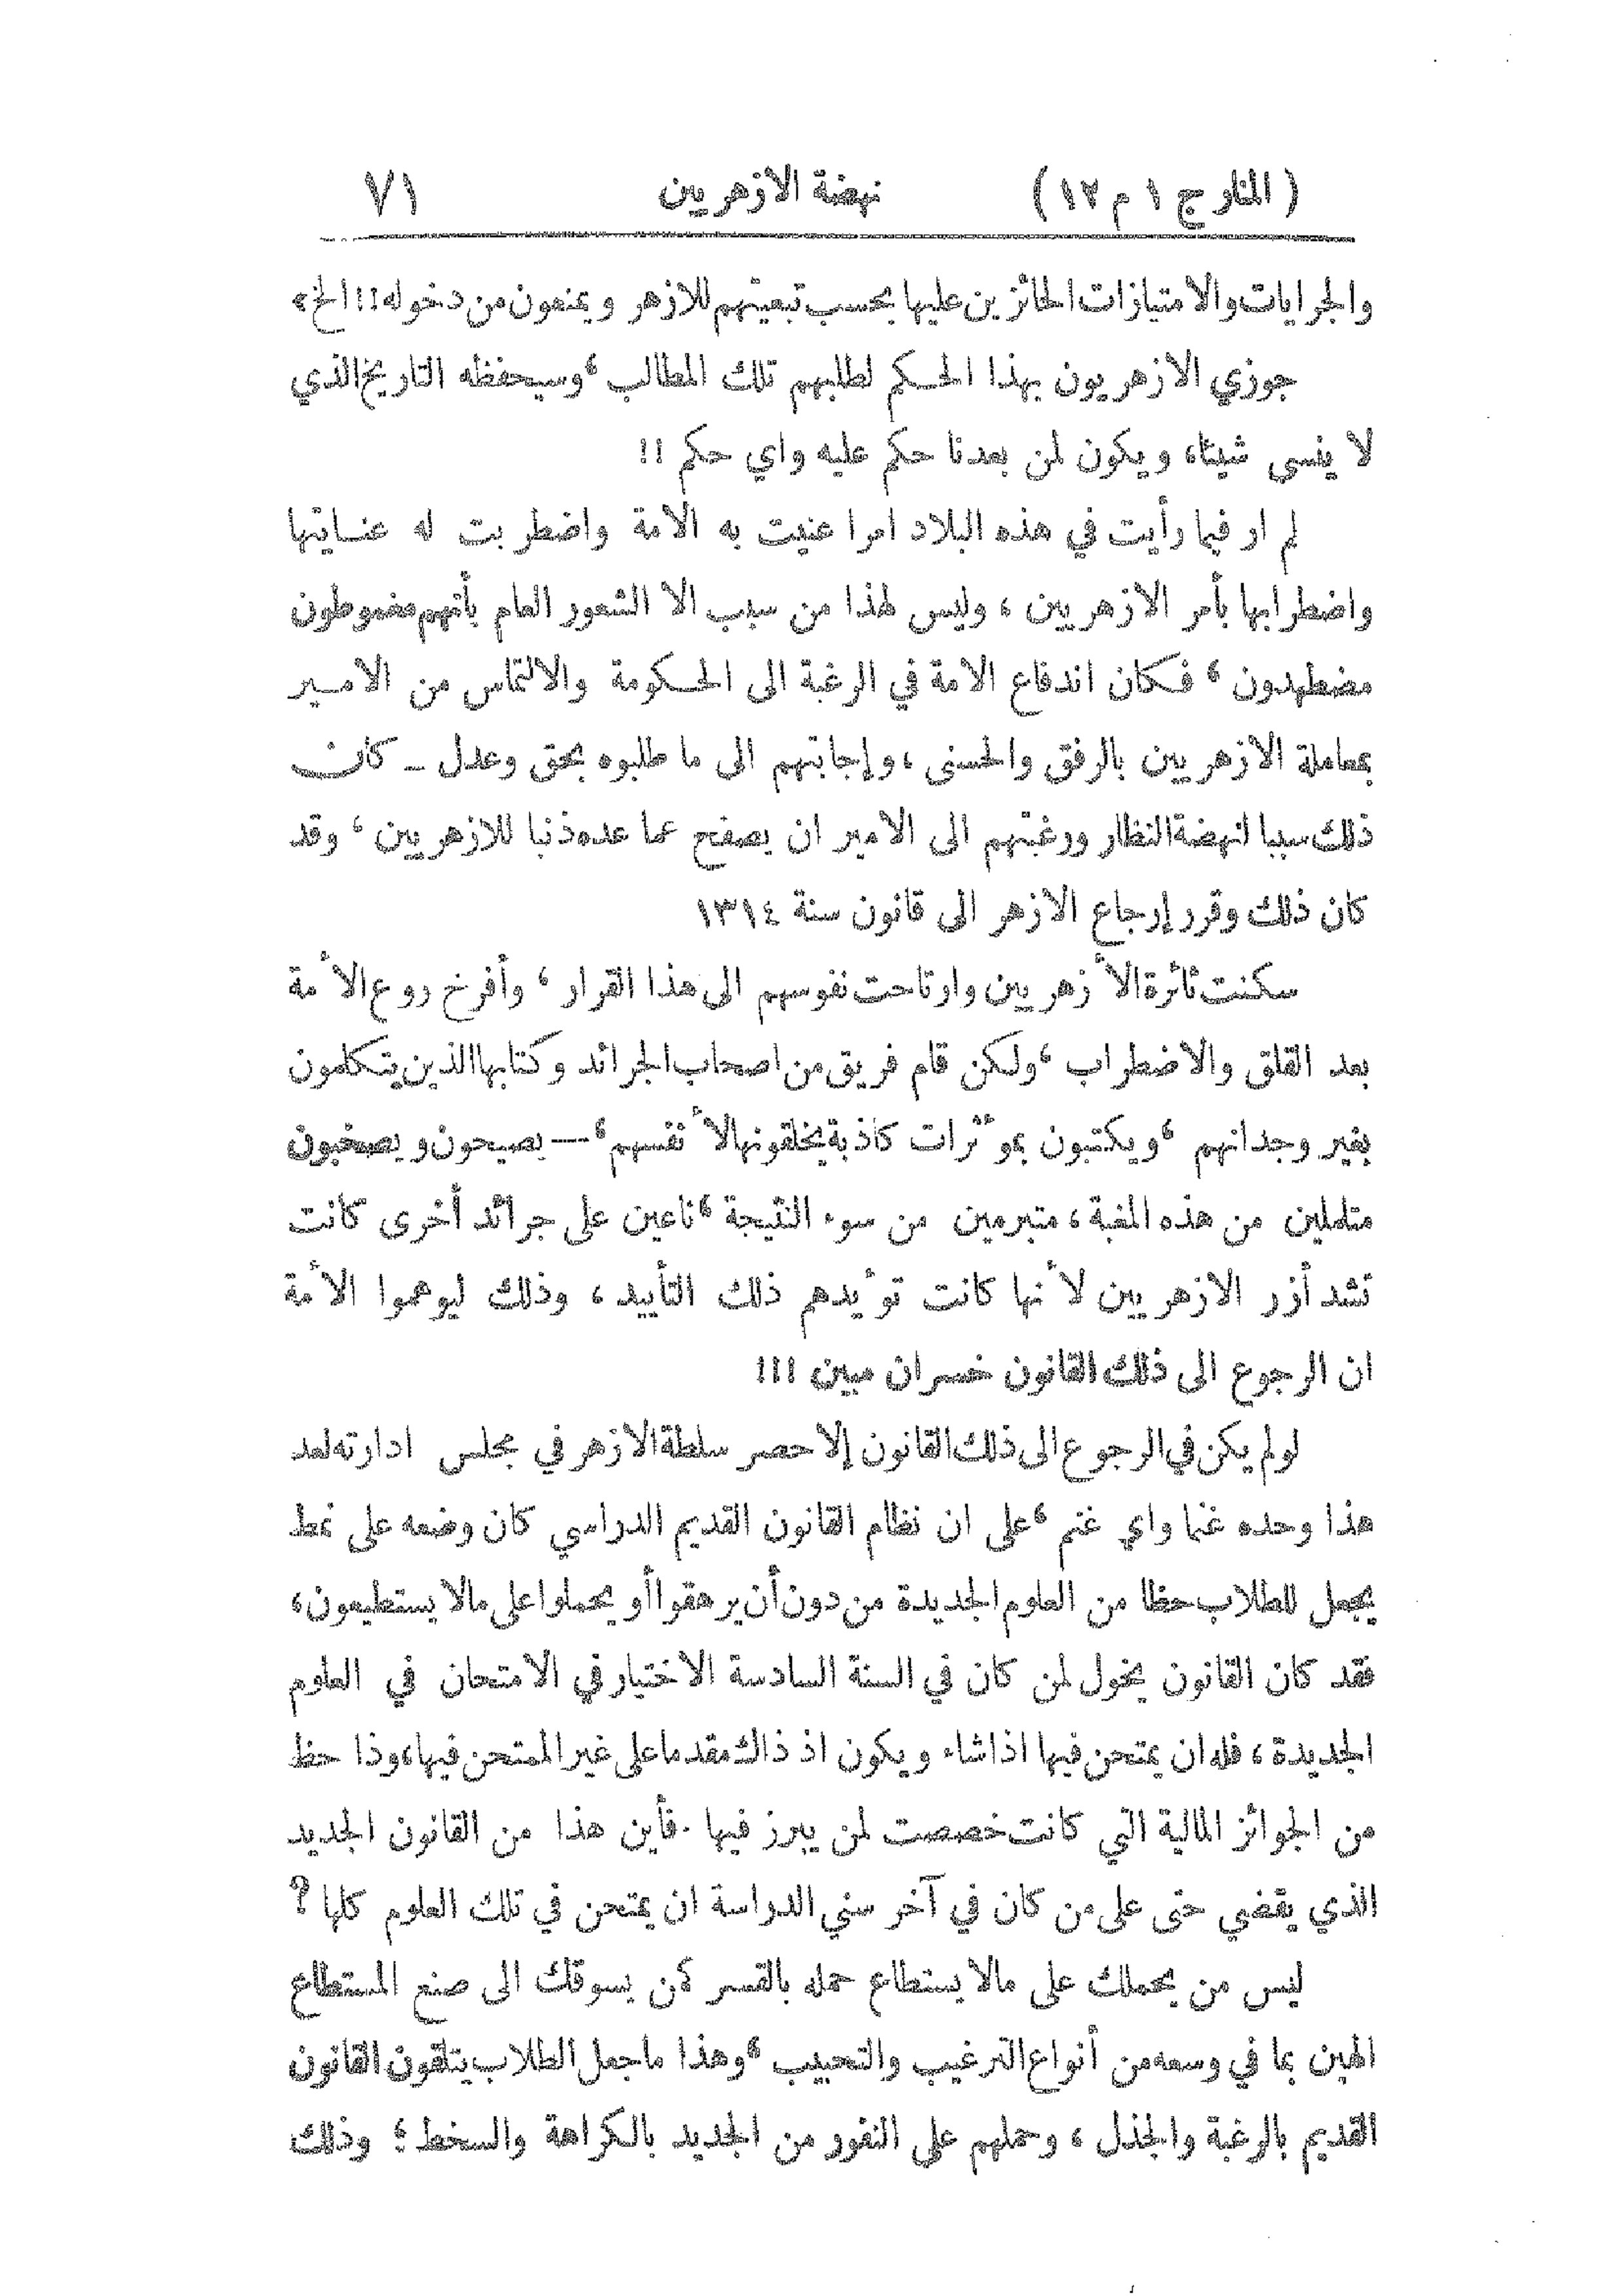 ( المنارج ١ م ١٢ ) نهضة الازهريين ٧١
والجرايات والامتيازات الحائزين عليها بحسب تبعيتهم للازهر ويمنعون من دخوله!! الخ»
جوزي الازهريون بهذا الحكم لطلبهم تلك المطالب، وسيحفظه التاريخ الذي
لا ينسى شيئا، ويكون لمن بعدنا حكم عليه واي حكم !!
لم ار فيما رأيت في هذه البلاد امرا عنيت به الامة واضطربت له عنايتها
واضطرابها بأمر الازهريين ، وليس لهذا من سبب الا الشعور العام بأنهم مغموطون
مضطهدون ، فكان اندفاع الامة في الرغبة الى الحكومة والالتماس من الامير
بمعاملة الازهريين بالرفق والحسنى ، وإجابتهم الى ما طلبوه بحق وعدل ــ كان
ذلك سببا لنهضة النظار ورغبتهم الى الامير ان يصفح عما عده ذنبا للازهريين ، وقد
كان ذلك وقرر إرجاع الازهر الى قانون سنة ١٣١٤
سكنت ثائرة الأزهريين وارتاحت نفوسهم الى هذا القرار ، وأفرخ روع الأمة
بعد القلق والاضطراب ، ولكن قام فريق من اصحاب الجرائد وكتابها الذين يتكلمون
بغير وجدانهم ، ويكتبون بمؤثرات كاذبة يخلقونها لأنفسهم، — يصيحون ويصخبون
متململين من هذه المغبة ، متبرمين من سوء النتيجة ، ناعين على جرائد أخرى كانت
تشد أزر الازهريين لأنها كانت تؤيدهم ذلك التأييد ، وذلك ليوهموا الأمة
ان الرجوع الى ذلك القانون خسران مبين !!!
لو لم يكن في الرجوع الى ذلك القانون إلا حصر سلطة الازهر في مجلس ادارته لعد
هذا وحده غنما واي غنم ، على ان نظام القانون القديم الدراسي كان وضعه على نمط
يجعل للطلاب حظا من العلوم الجديدة من دون أن يرهقوا أو يحملوا على مالا يستطيعون،
فقد كان القانون يخول لمن كان في السنة السادسة الاختيار في الامتحان في العلوم
الجديدة ، فله ان يمتحن فيها اذا شاء ويكون اذ ذاك مقدما على غير الممتحن فيها، وذا حظ
من الجوائز المالية التي كانت خصصت لمن يبرز فيها . فأين هذا من القانون الجديد
الذي يقضي حتى على من كان في آخر سني الدراسة ان يمتحن في تلك العلوم كلها ؟
ليس من يحملك على مالا يستطاع حمله بالقسر كمن يسوقك الى صنع المستطاع
الهين بما في وسعه من أنواع الترغيب والتحبيب ، وهذا ما جعل الطلاب يتلقون القانون
القديم بالرغبة والجذل ، وحملهم على النفور من الجديد بالكراهة والسخط ؛ وذلك